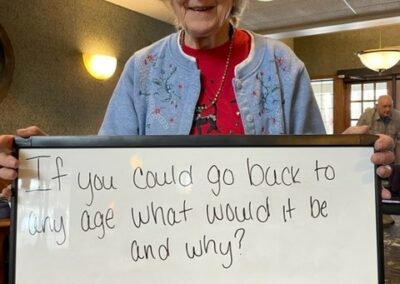 If you could go back to
any age what would it be
and why?